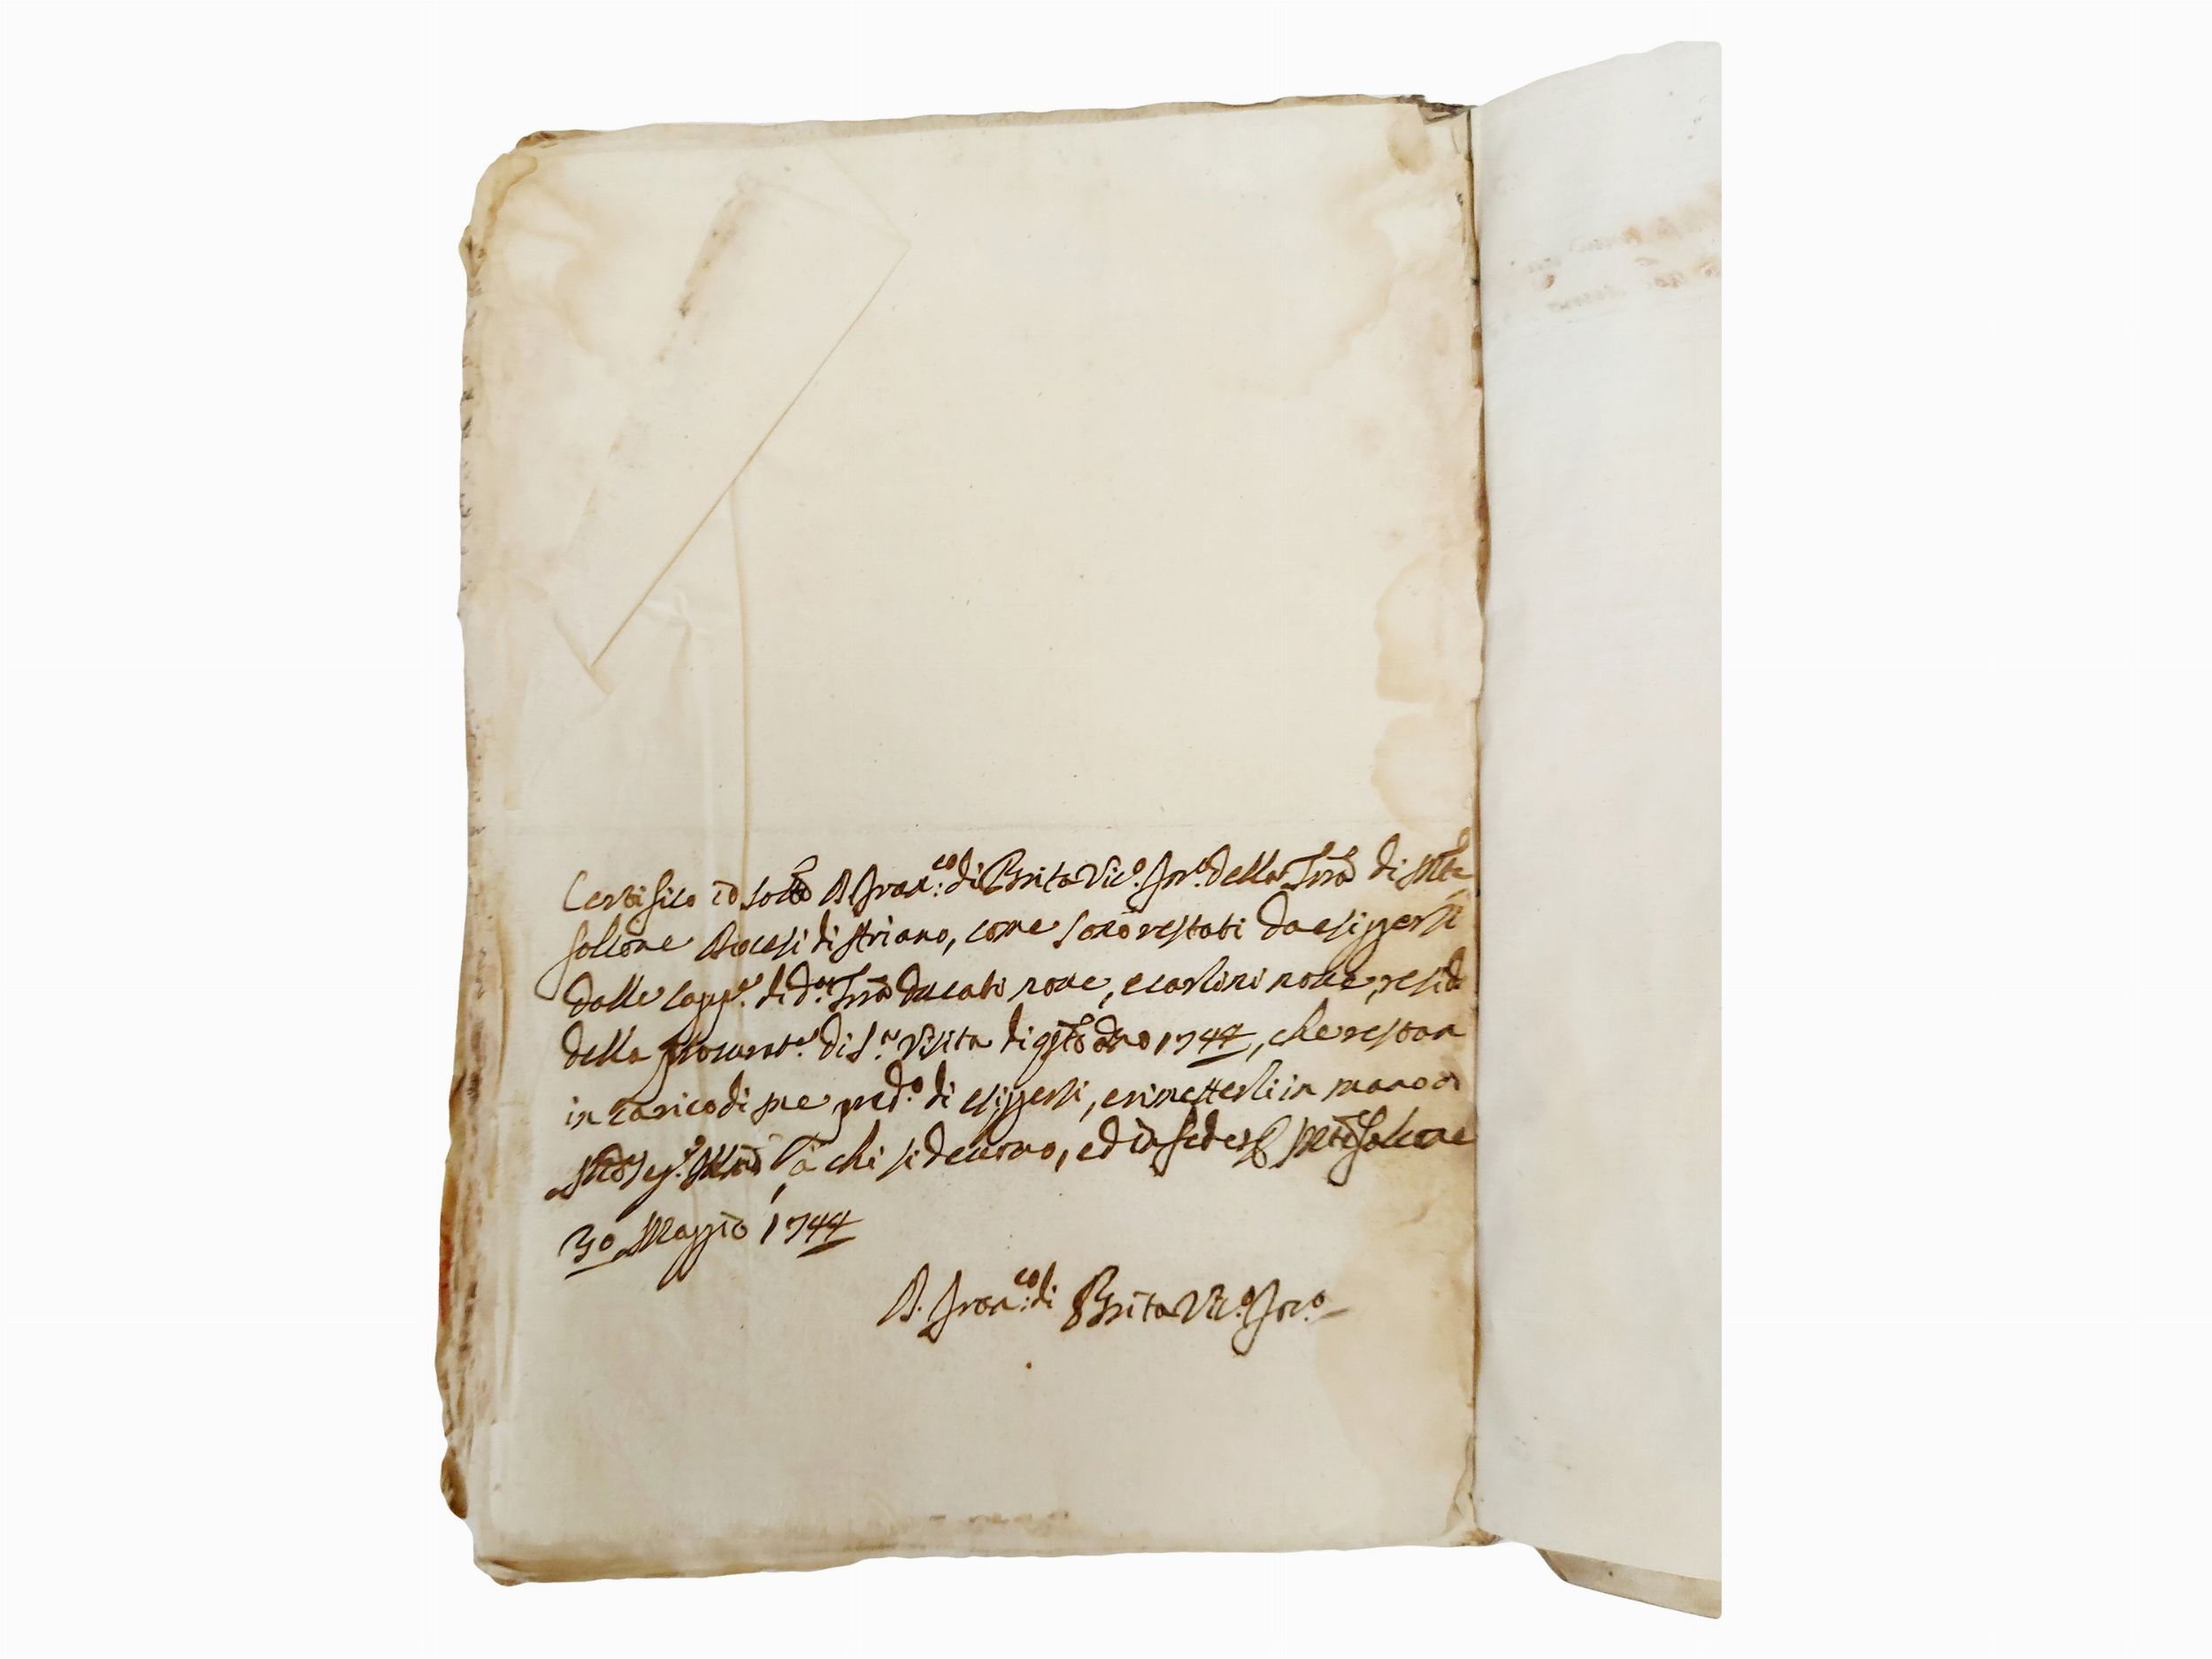 Certifico io sotto D. Fran:co di Brita Vic.o For.o della Terra di Mte
falcone Diocesi di Ariano, come sono restati da esiggersi
dalle Capp.e di d.a Terra ducati nove, e carlini nove, resid.
della procurat.e di S.a Visita di qsto anno 1744, che restan
in carico di me pred.o di esiggersi, e rimetterli in mano di
à chi si devono, ed in fede Mte Falcone
30 Maggio 1744
D. Fran:co di Brita Vic.o For.o